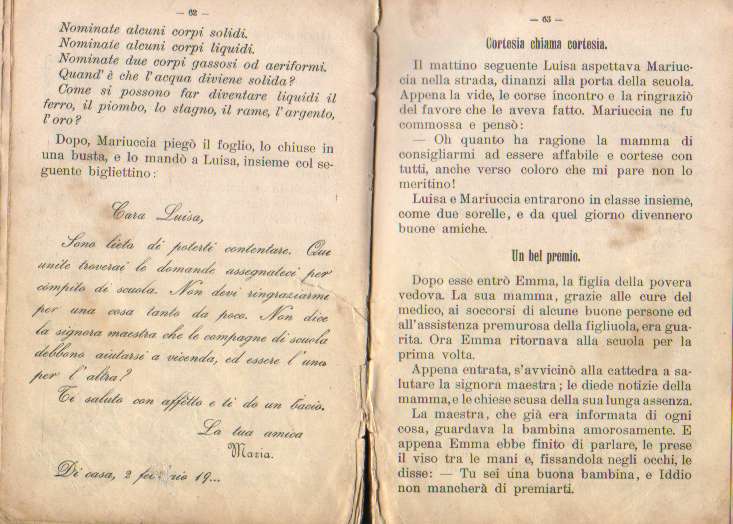 — 62 —
Nominate alcuni corpi solidi.
Nominate alcuni corpi liquidi.
Nominate due corpi gassosi od aeriformi.
Quand' è che l'acqua diviene solida?
Come si possono far diventare liquidi il
ferro, il piombo, lo stagno, il rame, l'argento,
l'oro?
Dopo, Mariuccia piegò il foglio, lo chiuse in
una busta, e lo mandò a Luisa, insieme col se-
guente bigliettino:
Cara Luisa,
Sono lieta di poterti contentare. Qui
unite troverai le domande assegnateci per
compito di scuola. Non devi ringraziarmi
per una cosa tanto da poco. Non dice
la signora maestra che le compagne di scuola
debbono aiutarsi a vicenda, ed essere l'una
per l'altra?
Ti saluto con affetto e ti do un bacio.
La tua amica
Maria.
Di casa, 2 19...
— 63 —
Cortesia chiama cortesia.
Il mattino seguente Luisa aspettava Mariuc-
cia nella strada, dinanzi alla porta della scuola.
Appena la vide, le corse incontro e la ringraziò
del favore che le aveva fatto. Mariuccia ne fu
commossa e pensò:
— Oh quanto ha ragione la mamma di
consigliarmi ad essere affabile e cortese con
tutti, anche verso coloro che mi pare non lo
meritino!
Luisa e Mariuccia entrarono in classe insieme,
come due sorelle, e da quel giorno divennero
buone amiche.
Un bel premio.
Dopo esse entrò Emma, la figlia della povera
vedova. La sua mamma, grazie alle cure del
medico, ai soccorsi di alcune buone persone ed
all'assistenza premurosa della figliuola, era gua-
rita. Ora Emma ritornava alla scuola per la
prima volta.
Appena entrata, s'avvicinò alla cattedra a sa-
lutare la signora maestra; le diede notizie della
mamma, e le chiese scusa della sua lunga assenza.
La maestra, che già era informata di ogni
cosa, guardava la bambina amorosamente. E
appena Emma ebbe finito di parlare, le prese
il viso tra le mani e, fissandola negli occhi, le
disse: — Tu sei una buona bambina, e Iddio
non mancherà di premiarti.